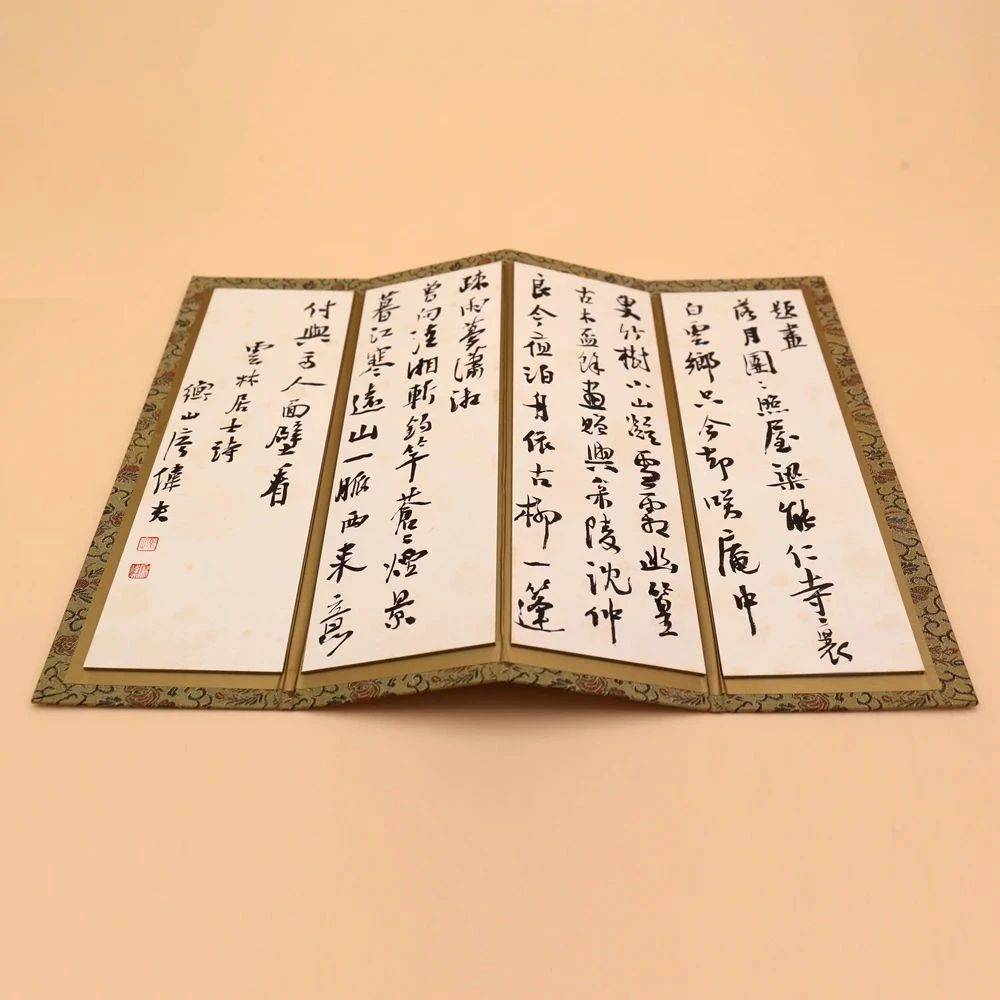 題畫
落月團〻照屋梁能仁寺裏
白雲鄉只今却咲庵中
叟竹樹小山凝雪霜幽篁
古木餘畫與陵沈仲
良今夜泊舟依古柳一篷
疎雨夢瀟湘
曾向清湘斬釣竿蒼〻煙景
暮江寒遠山一脈西來意
付與高人面壁看
雲林居士詩
衡山偉夫